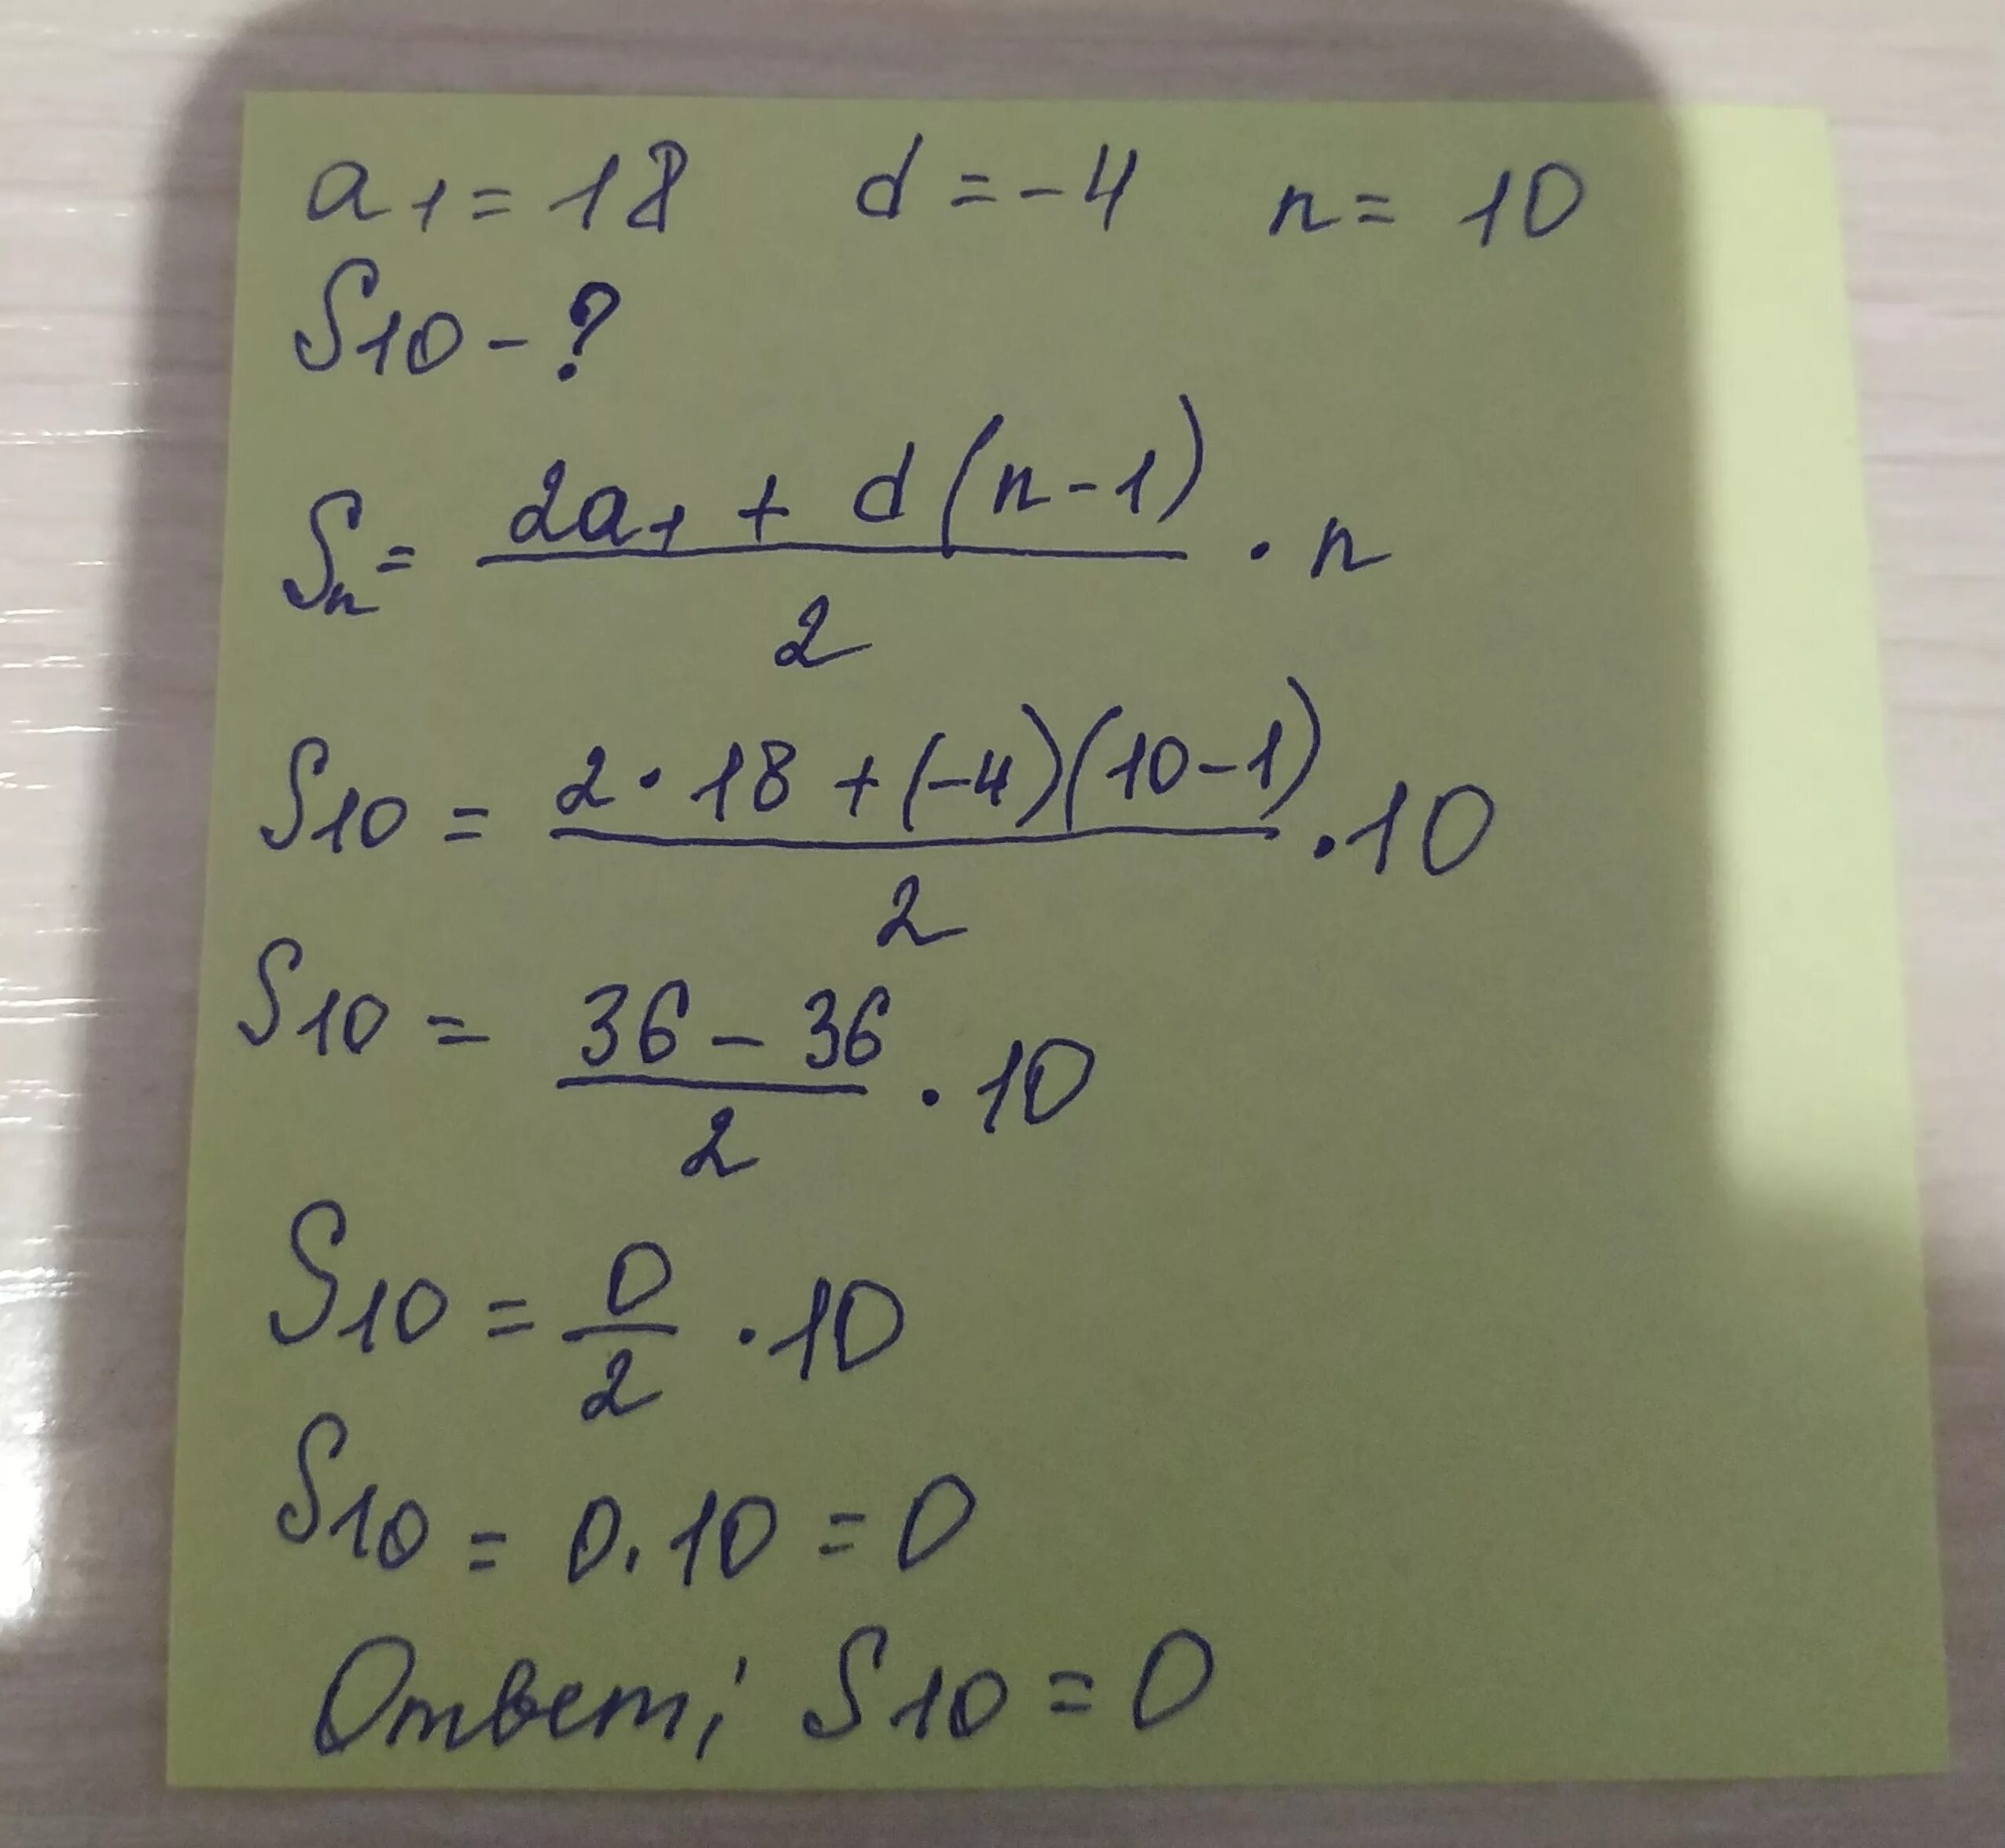 a₁ = 18 d = -4 n = 10
S₁₀ - ?
Sₙ = (2a₁ + d(n-1))/2 · n
S₁₀ = (2 · 18 + (-4)(10-1))/2 · 10
S₁₀ = (36 - 36)/2 · 10
S₁₀ = 0/2 · 10
S₁₀ = 0 · 10 = 0
Ответ: S₁₀ = 0